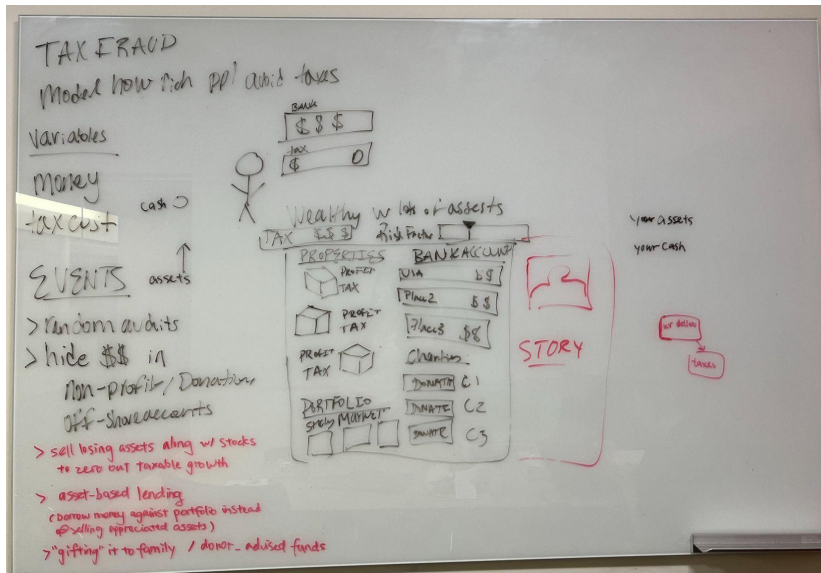 TAX FRAUD
Model how rich ppl avoid taxes
Variables
money
tax cost
cash
assets
EVENTS
> random audits
> hide $$ in
non-profit / Donations
off-shore accents
> sell losing assets along w/ stocks
to zero out taxable growth
> asset-based lending
(borrow money against portfolio instead
of selling appreciated assets)
> "gifting" it to family / donor-advised funds
BANK
$$$
tax
$ 0
Wealthy w lots of assests
TAX $$$
Risk Factor
PROPERTIES
PROFIT
TAX
PROFIT
TAX
PROFIT
TAX
PORTFOLIO
MARKET
BANK ACCOUNT
$$
Place2 $$
Place3 $$
Charities
DONATE C1
DONATE C2
DONATE C3
STORY
your assets
your cash
taxes